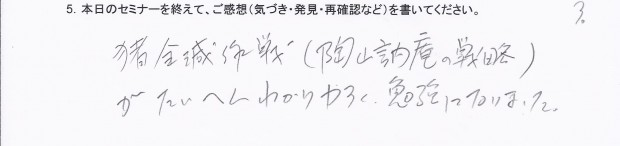 5. 本日のセミナーを終えて、ご感想(気づき・発見・再確認など)を書いてください。 3.
猪全滅作戦(陶山訥庵の戦略)
がたいへんわかりやすく、勉強になりました。